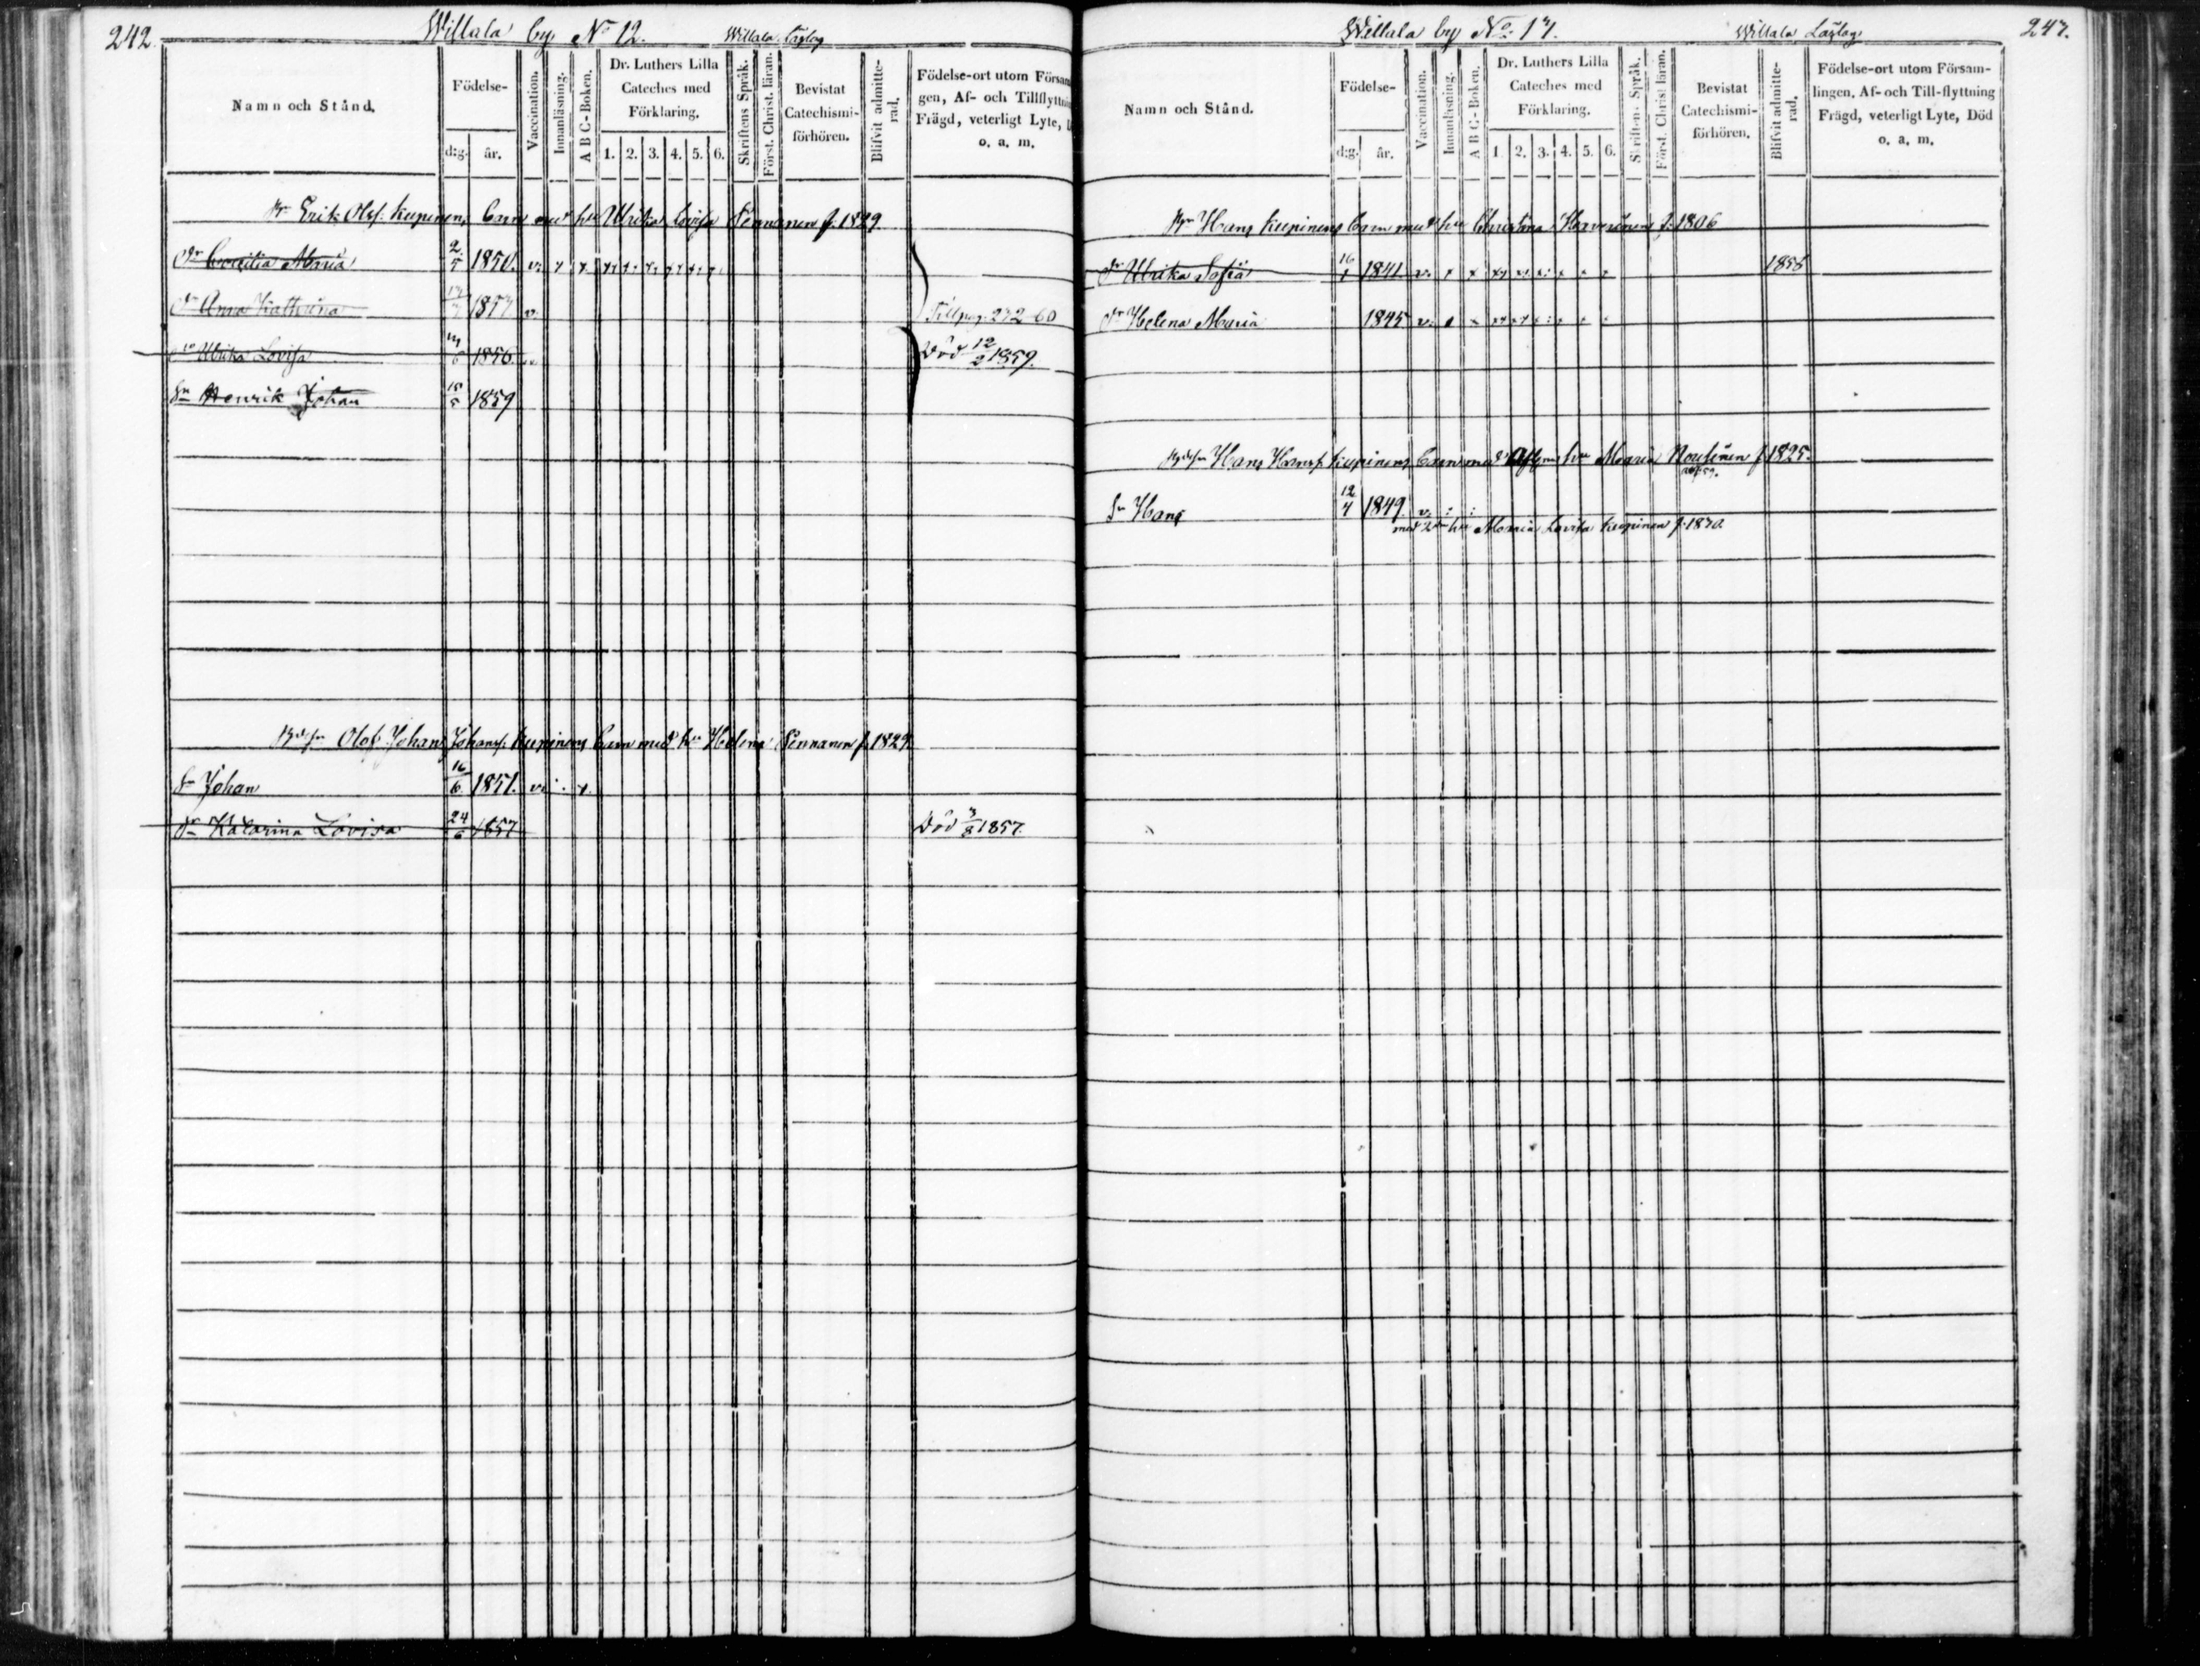 242.
Willala by No 12. Willala Läslag
Namn och Stånd.
Födelse-
d:g. år.
Vaccination.
Innanläsning.
A B C-Boken.
Dr. Luthers Lilla
Cateches med
Förklaring.
1. 2. 3. 4. 5. 6.
Skriftens Språk.
Först. Christ. läran.
Bevistat
Catechismi-
förhören.
Blifvit admitte-
rad.
Födelse-ort utom Försam
gen, Af- och Tillflyttnin
Frägd, veterligt Lyte, D
o. a. m.
Erik Olofs: Kuepinens Barn med hu Ulrika Lovisa Pennanen f. 1829
dr Caecilia Maria 2/5 1850. v. x x
dr Anna Katharina 1857 v. Till pag. 272-60
dr Ulrika Lovisa 1856 Död 12/2 1859.
Sn Henrik Johan 1859
Olof Johans Johanss: Kuepinens Barn med hu Helena Pennanen f. 1829
Sn Johan 16/6 1851. v.
dr Katarina Lovisa 24/6 1857 Död 3/8 1857.
247.
Willala by No: 14. Willala Läslag
Namn och Stånd.
Födelse-
d:g. år.
Vaccination.
Innanläsning.
A B C-Boken.
Dr. Luthers Lilla
Cateches med
Förklaring.
1 2. 3. 4. 5. 6.
Skriften-Språk.
Först. Christ läran.
Bevistat
Catechismi-
förhören.
Blifvit admitte-
rad.
Födelse-ort utom Försam-
lingen, Af- och Till-flyttning
Frägd, veterligt Lyte, Död
o. a. m.
Hans Kuepinens Barn med hu Christina Harvoinen f. 1806
dr Ulrika Sofia 16/1 1841. v. x x 1858
dr Helena Maria 1845 v.
Hans Hanss: Kuepinens Barn med hu Maria Noutinen f. 1825.
Sn Hans 12/4 1849. v.
med 2dra hu Maria Lovisa Kuepinen f. 1830